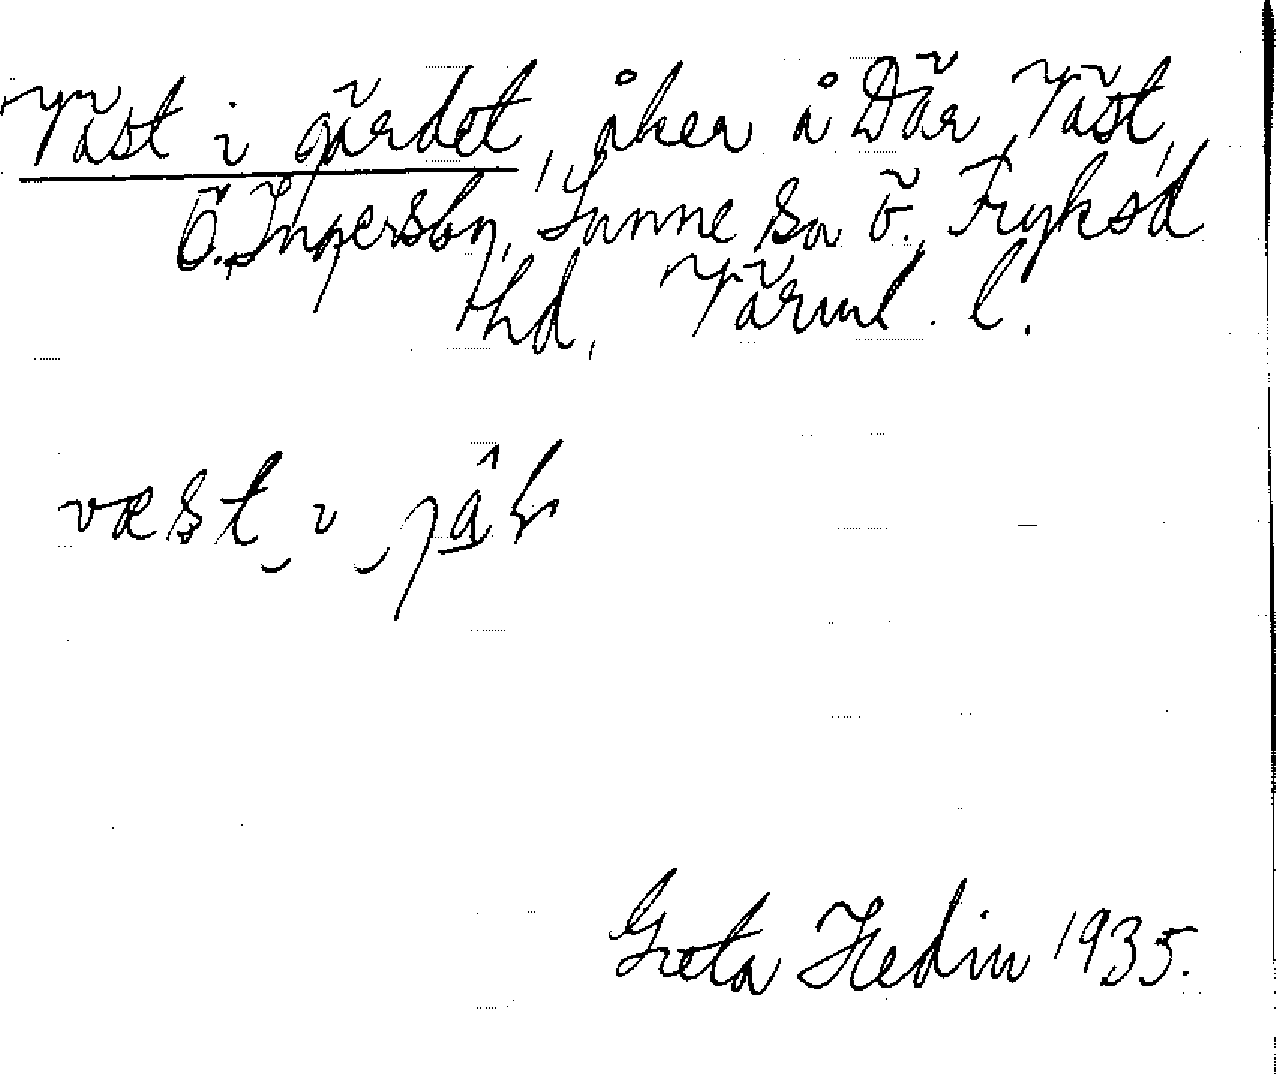 Väst i gärdet, åker å Där Väst,
Ö. Ingersbyn, Sunne sn Ö. Fryksd
hd, Värml. l.
væst i
Greta Hedin 1935.